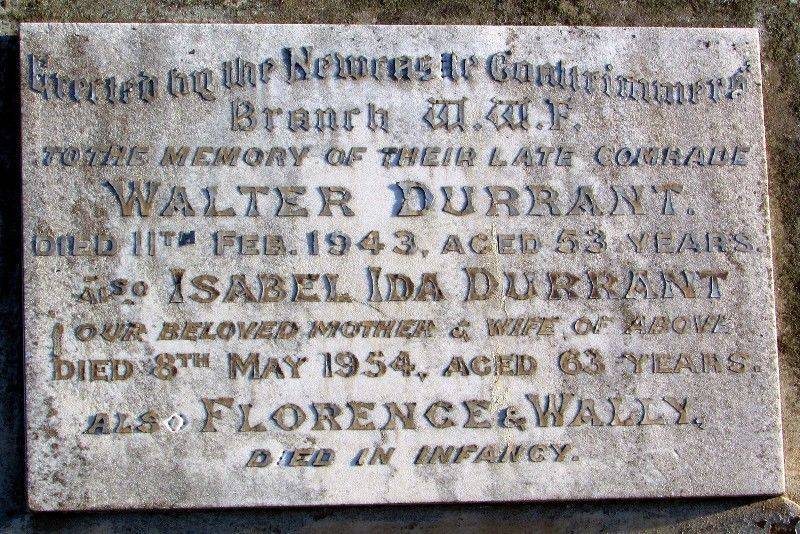 Erected by the Newcastle Coaltrimmers'
Branch W.W.F.
TO THE MEMORY OF THEIR LATE COMRADE
WALTER DURRANT.
DIED 11TH FEB. 1943, AGED 53 YEARS.
ALSO ISABEL IDA DURRANT
OUR BELOVED MOTHER & WIFE OF ABOVE
DIED 8TH MAY 1954, AGED 63 YEARS.
ALSO FLORENCE & WALLY,
DIED IN INFANCY.